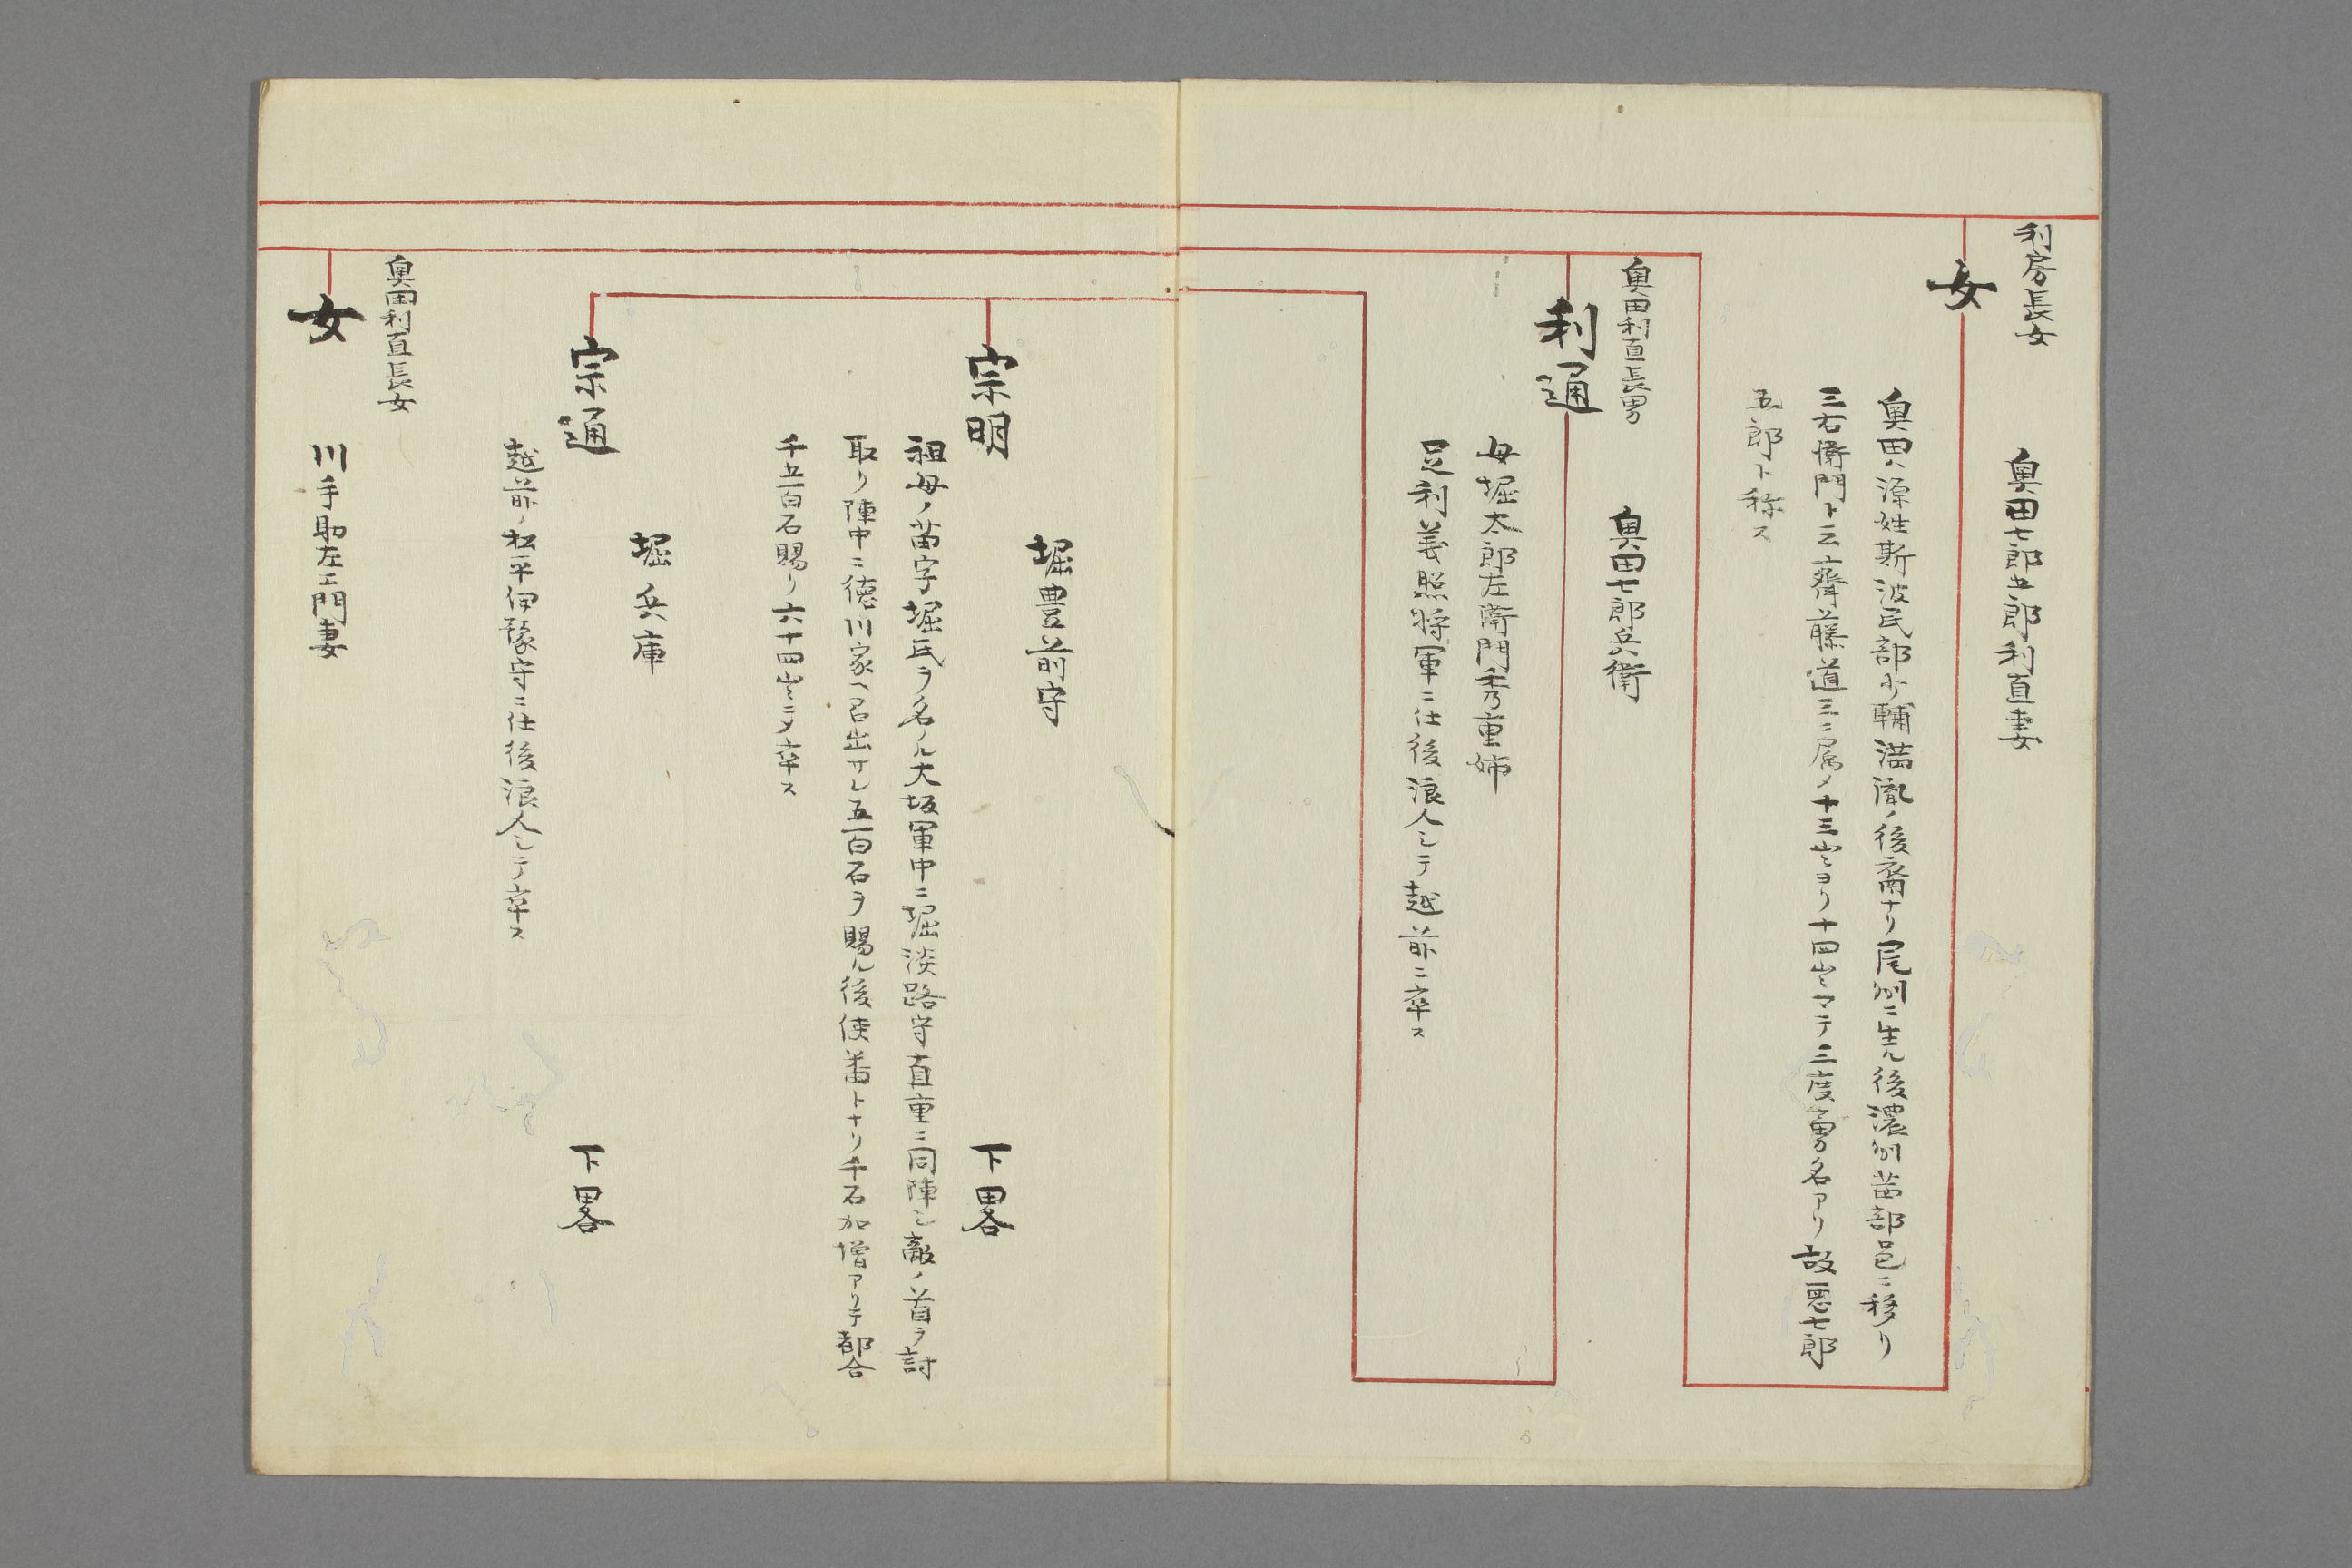 利房長女
女
奥田七郎五郎利直妻
奥田ハ源姓斯波民部少輔満胤ノ後裔ナリ尾州ニ生ル後濃州茜部邑ニ移リ
三右衛門ト云齋藤道三ニ属メ十三歳ヨリ十四歳マテ三度勇名アリ故悪七郎
五郎ト称ス
奥田利直長男
利通
奥田七郎兵衛
母堀太郎左衛門秀重姉
足利義照将軍ニ仕後浪人シテ越前ニ卒ス
堀豊前守
宗明
下畧
祖母ノ苗字堀氏ヲ名ノル大坂軍中ニ堀淡路守直重ニ同陣シ敵ノ首ヲ討
取リ陣中ニ徳川家ヘ召出サレ五百石ヲ賜ル後使番トナリ千石加増アリテ都合
千五百石賜リ六十四歳ニメ卒ス
堀兵庫
宗通
下畧
越前ノ松平伊豫守ニ仕後浪人シテ卒ス
奥田利直長女
女
川手助左エ門妻